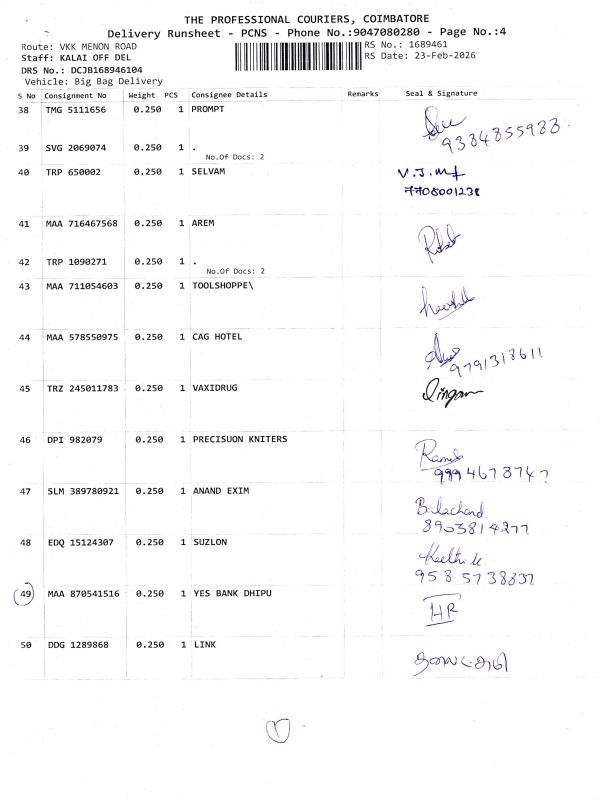 THE PROFESSIONAL COURIERS, COIMBATORE
Delivery Runsheet - PCNS - Phone No.:9047080280 - Page No.:4
Route: VKK MENON ROAD
RS No.: 1689461
Staff: KALAI OFF DEL
RS Date: 23-Feb-2026
DRS No.: DCJB168946104
Vehicle: Big Bag Delivery
S No Consignment No Weight PCS Consignee Details Remarks Seal & Signature
38 TMG 5111656 0.250 1 PROMPT
9384855988
39 SVG 2069074 0.250 1 .
No.Of Docs: 2
40 TRP 650002 0.250 1 SELVAM
7708001238
41 MAA 716467568 0.250 1 AREM
42 TRP 1090271 0.250 1 .
No.Of Docs: 2
43 MAA 711054603 0.250 1 TOOLSHOPPE\
44 MAA 578550975 0.250 1 CAG HOTEL
9791313611
45 TRZ 245011783 0.250 1 VAXIDRUG
46 DPI 982079 0.250 1 PRECISUON KNITERS
47 SLM 389780921 0.250 1 ANAND EXIM
Balachand
8903814277
48 EDQ 15124307 0.250 1 SUZLON
9585738837
49 MAA 870541516 0.250 1 YES BANK DHIPU
HR
50 DDG 1289868 0.250 1 LINK